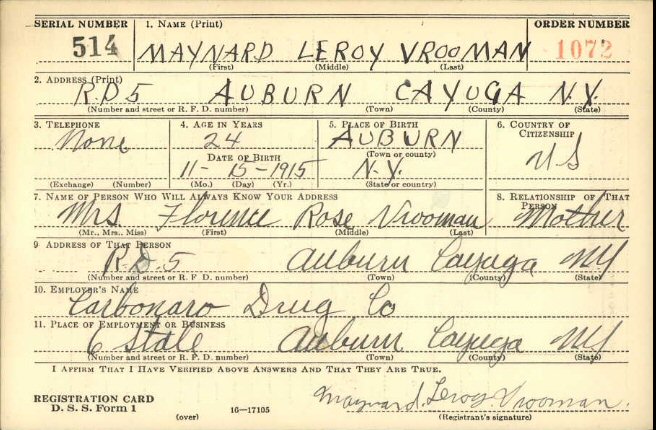 SERIAL NUMBER 1. NAME (Print) ORDER NUMBER
514 MAYNARD LEROY VROOMAN 1072
(First) (Middle) (Last)
2. ADDRESS (Print)
R.D5 AUBURN CAYUGA N.Y.
(Number and street or R. F. D. number) (Town) (County) (State)
3. TELEPHONE 4. AGE IN YEARS 5. PLACE OF BIRTH 6. COUNTRY OF CITIZENSHIP
None 24 AUBURN US
DATE OF BIRTH (Town or county)
11-15-1915 N.Y.
(Exchange) (Number) (Mo.) (Day) (Yr.) (State or country)
7. NAME OF PERSON WHO WILL ALWAYS KNOW YOUR ADDRESS 8. RELATIONSHIP OF THAT PERSON
Mrs. Florence Rose Vrooman Mother
(Mr., Mrs., Miss) (First) (Middle) (Last)
9 ADDRESS OF THAT PERSON
R.D.5 Auburn Cayuga NY
(Number and street or R. F. D. number) (Town) (County) (State)
10. EMPLOYER'S NAME
Carbonaro Drug Co
11. PLACE OF EMPLOYMENT OR BUSINESS
6 State Auburn Cayuga NY
(Number and street or R. F. D. number) (Town) (County) (State)
I AFFIRM THAT I HAVE VERIFIED ABOVE ANSWERS AND THAT THEY ARE TRUE.
REGISTRATION CARD
D. S. S. Form 1 Maynard Leroy Vrooman.
(over) 16-17105 (Registrant's signature)